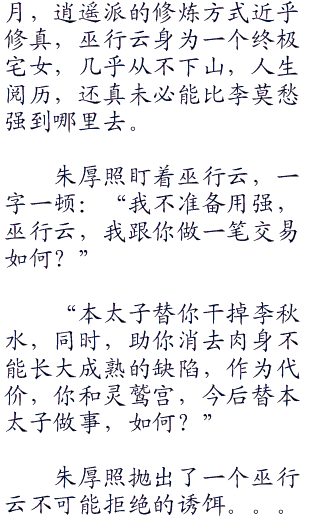 月，逍遥派的修炼方式近乎
修真，巫行云身为一个终极
宅女，几乎从不下山，人生
阅历，还真未必能比李莫愁
强到哪里去。
朱厚照盯着巫行云，一
字一顿：“我不准备用强，
巫行云，我跟你做一笔交易
如何？”
“本太子替你干掉李秋
水，同时，助你消去肉身不
能长大成熟的缺陷，作为代
价，你和灵鹫宫，今后替本
太子做事，如何？”
朱厚照抛出了一个巫行
云不可能拒绝的诱饵。。。